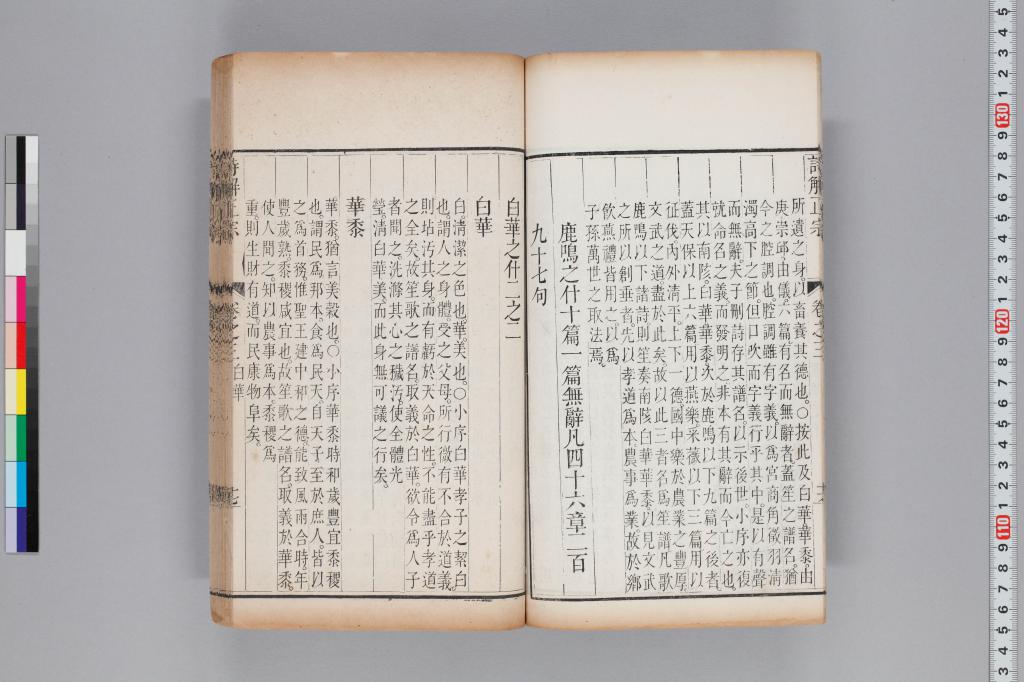 所遺之身以畜養其德也。○按此及白華華黍由
庚崇邱由儀六篇有名而無辭者蓋笙之譜名猶
今之腔調也腔調雖有字義以爲宮商角徵羽清
濁高下之節但口吹而字義行乎其中是以有聲
而無辭夫子刪詩存其譜名以示後世小序亦復
就命名之義而發明之非本有其辭而今亡之也。
其以南陔白華華黍次於鹿鳴以下九篇之後者。
蓋天保以上六篇用以燕樂采薇以下三篇用以
征伐內外清平上下一德國中樂於農業之豐厚
文武之道盡於此矣故以此三者名爲笙譜凡歌
鹿鳴以下諸詩則笙奏南陔白華華黍以見文武
之所以創垂者先以孝道爲本農事爲業故於鄉
飲燕禮皆用之以爲
子孫萬世之取法焉。
鹿鳴之什十篇一篇無辭凡四十六章二百
九十七句
詩解正宗 卷之三
白華之什二之二
白華
白清潔之色也。華美也。○小序白華孝子之絜白
也謂人之身體受之父母所行微有不合於道義
則玷汚其身而有虧於天命之性不能盡乎孝道
之全矣故笙歌之譜名取義於白華欲令爲人子
者聞之洗滌其心之穢汚使全體光
瑩清白華美而此身無可議之行矣。
華黍
華黍猶言美穀也。○小序華黍時和歲豐宜黍稷
也謂民爲邦本食爲民天自天子至於庶人皆以
之爲首務惟聖王建中和之德能致風雨合時年
豐歲熟黍稷咸宜也故笙歌之譜名取義於華黍。
使人聞之知以農事爲本黍稷爲
重則生財有道而民康物阜矣。
詩解正宗 卷之三 白華